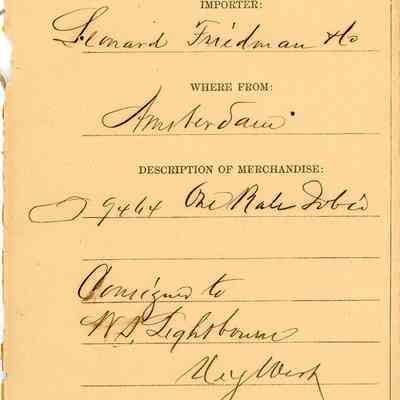 IMPORTER:
Leonard Friedman & Co
WHERE FROM:
Amsterdam
DESCRIPTION OF MERCHANDISE:
9464 One Bale Tob'co
Consigned to
W.D. Lightbourn
Key West